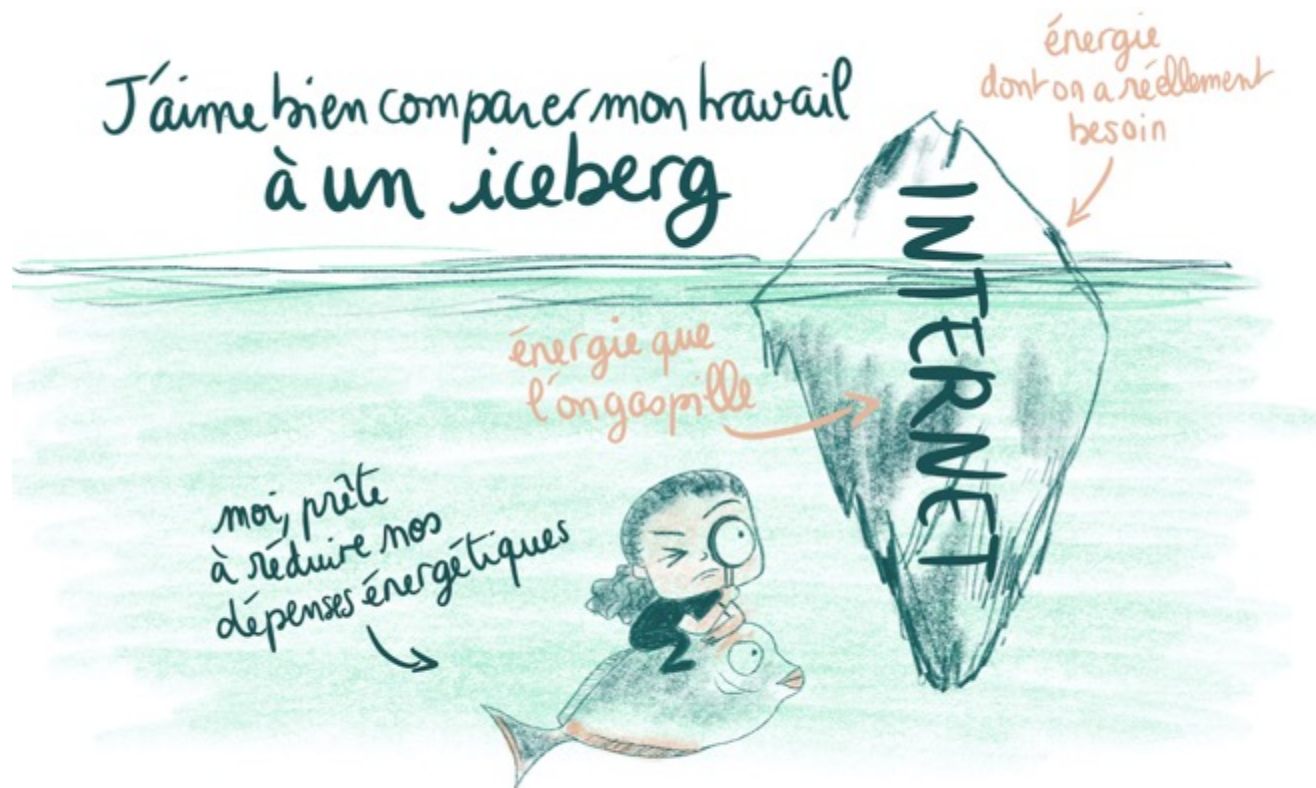 J'aime bien comparer mon travail
à un iceberg
énergie
dont on a réellement
besoin
INTERNET
énergie que
l'on gaspille
moi, prête
à réduire nos
dépenses énergétiques